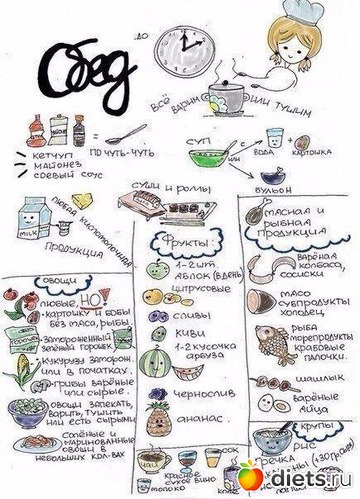 Обед
до
всё варим или тушим
кетчуп
майонез
соевый соус
= по чуть-чуть
суп с
или
вода + картошка
бульон
MILK
любая кисломолочная
продукция
суши и роллы
Фрукты:
1-2 шт.
яблок (в день)
цитрусовые
сливы
киви
1-2 кусочка
арбуза
чернослив
ананас.
мясная и
рыбная
продукция
варёная
колбаса,
сосиски
мясо
субпродукты
холодец
рыба
морепродукты
крабовые
палочки.
шашлык
варёные
яйца
овощи
любые, НО!
картошку и бобы
без мяса, рыбы.
горошек
замороженный
зелёный горошек
кукурузу заморож.
или в початках.
грибы варёные
или сырые.
овощи запекать,
варить, тушить
или есть сырыми
солёные и
маринованные
овощи в
небольших кол-вах
чай
красное
сухое вино
молоко
сок
крупы
рис
гречка
(+30 грамм)
diets.ru